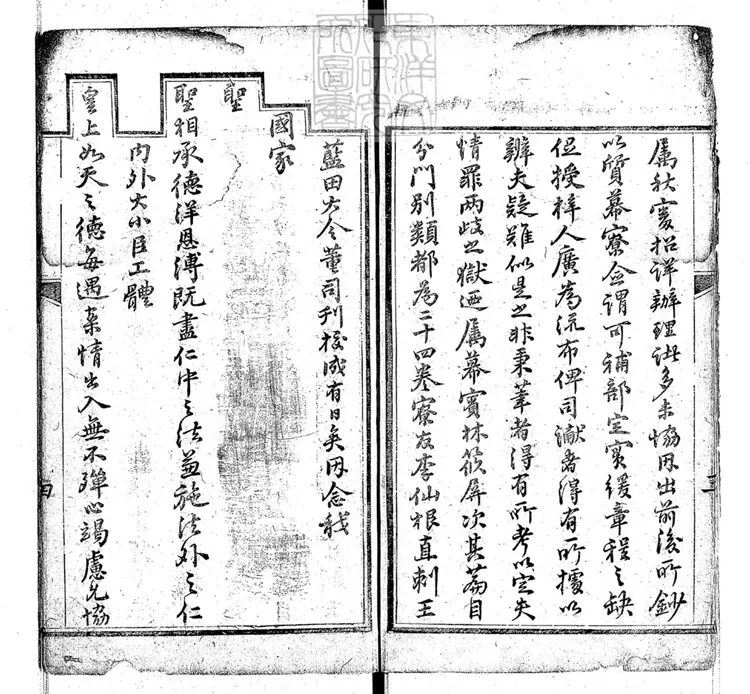 屬秋寔招詳辦理訛多未協因出前後所鈔
以質幕寮僉謂可補部定實緩章程之缺
促授梓人廣為流布俾司讞者得有所據以
辨夫疑難似是之非秉筆者得有所考以定夫
情罪兩歧之獄迺屬幕賓林筱屏次其篇目
分門別類都為二十四卷寮友李仙根直刺王
藍田大令董司刊校成有日矣因念我
國家
聖
聖相承德洋恩溥既盡仁中之法兼施法外之仁
內外大小臣工體
皇上如天之德每遇案情出入無不殫心竭慮允協